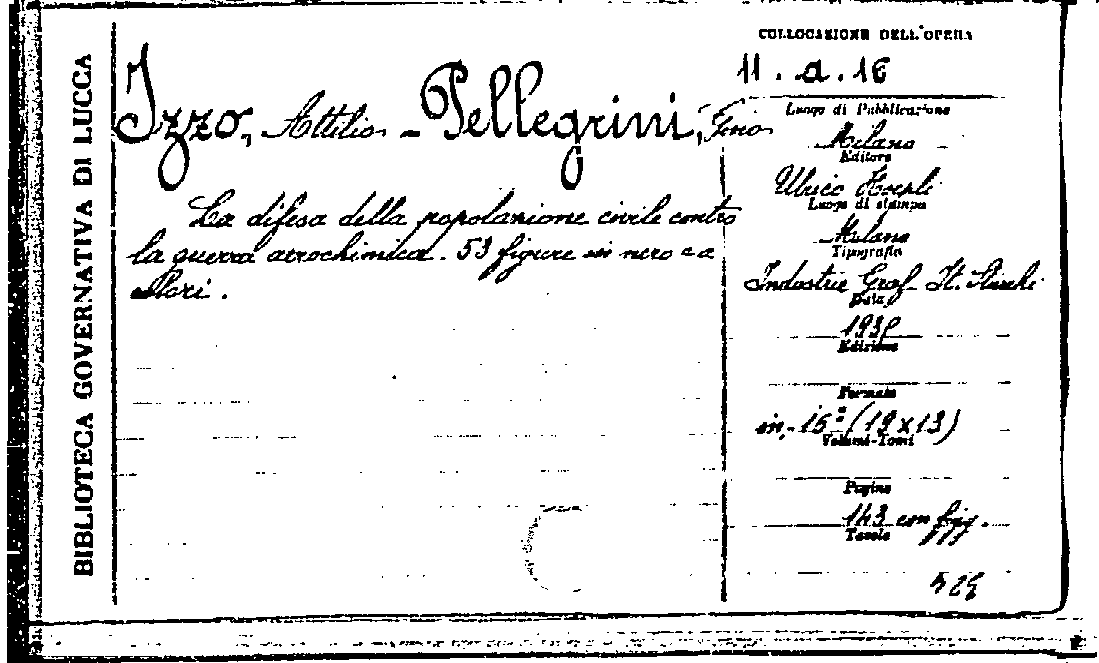 BIBLIOTECA GOVERNATIVA DI LUCCA
Izzo, Attilio - Pellegrini, Gino
La difesa della popolazione civile contro
la guerra aerochimica. 53 figure in nero e a
colori.
COLLOCAZIONE DELL'OPERA
11. a. 16
Luogo di Pubblicazione
Milano
Editore
Ulrico Hoepli
Luogo di stampa
Milano
Tipografia
Industrie Graf. It. Stucchi
Data
Edizione
Formato
in-16º (19x13)
Volumi-Tomi
Pagine
143 con figg.
Tavole